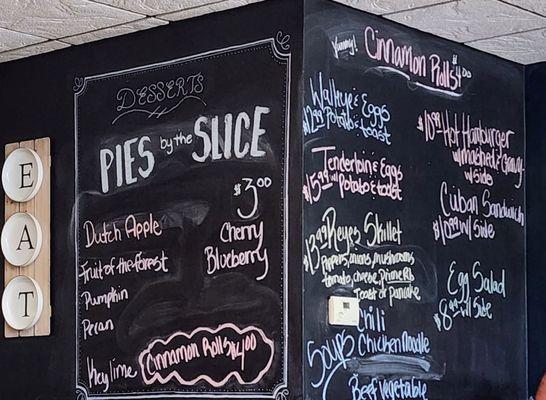 E
A
T
DESSERTS
PIES by the SLICE
$3.00
Dutch Apple
Cherry
Fruit of the forest
Blueberry
Pumpkin
Pecan
Key lime
Cinnamon Rolls $4.00
Yummy!
Cinnamon Rolls
$4.00
Walleye & Eggs
Potato & toast
Tenderloin & Eggs
$15.99 w/ Potato & toast
$13.99 Reyes Skillet
Peppers, onions, mushrooms
tomato, cheese, Prime Rib
Toast or pancake
Soup
Chili
Chicken Noodle
Beef Vegetable
Hot Hamburger
w/ mashed & Gravy
w/ Side
Cuban Sandwich
w/ Side
Egg Salad
w/ Side